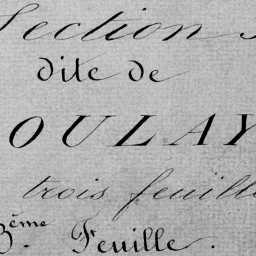 Section
dite de
OULAY
trois feuille
3ème Feuille.